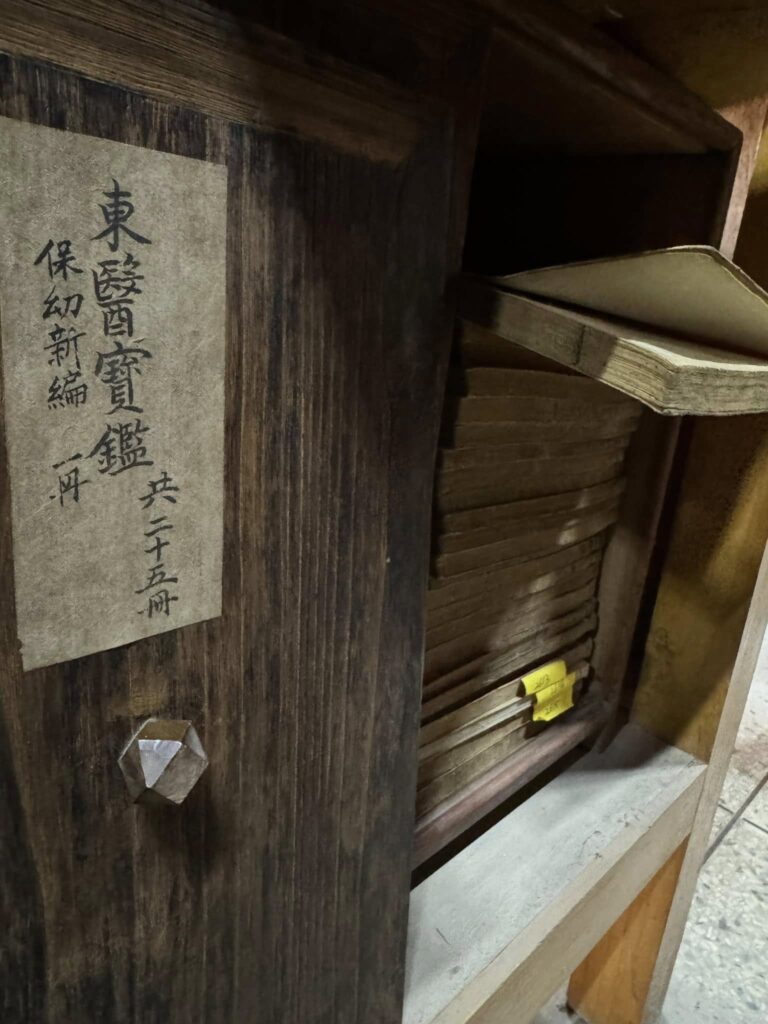 東醫寶鑑
共二十五冊
保幼新編 一冊